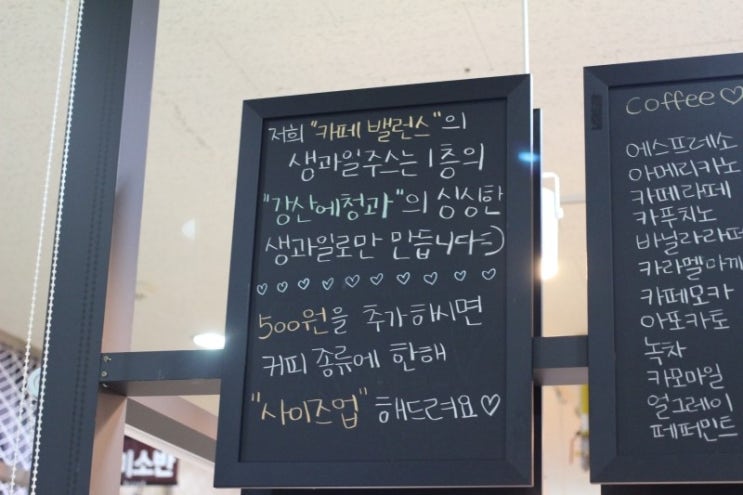 저희 "카페 밸런스"의
생과일주스는 1층의
"강산에청과"의 싱싱한
생과일로만 만듭니다=)
♡♡♡♡♡♡♡♡♡♡
500원을 추가하시면
커피 종류에 한해
"사이즈업" 해드려요♡
Coffee♡
에스프레소
아메리카노
카페라떼
카푸치노
바닐라라떼
카라멜마끼
카페모카
아포카토
녹차
카모마일
얼그레이
페퍼민트
미소반